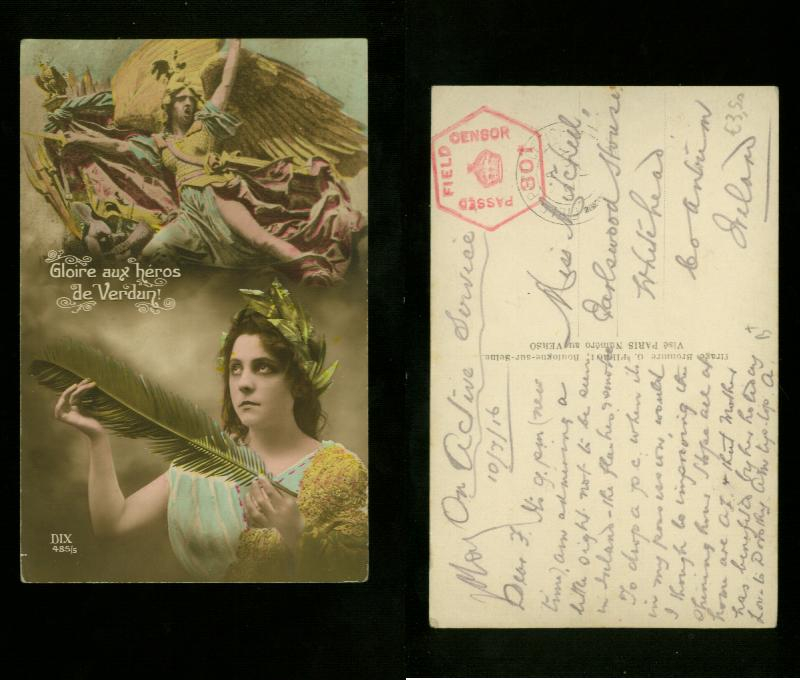 Gloire aux héros
de Verdun!
DIX
485/5
FIELD CENSOR
PASSED
301
On Active Service
10/7/16
Miss Mitchell,
Earlswood House
Whitehead
Co Antrim
Ireland
€3,50
Tirage Bromure G. Boulogne-sur-Seine
Visé PARIS Numéro au VERSO
Dear F. Its 9. pm (new
time), am admiring a
little sight not to be seen
in Ireland - the flashes & smoke
To drop a p.c. when it
in my possession would
I thought to improving the
shining hour. Hope all at
home are A1 & that Mother
has benefited by her holiday
Love to Dorothy Am tip. top. A.